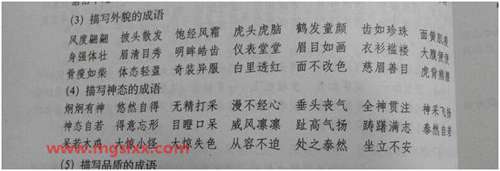 (3) 描写外貌的成语
风度翩翩 披头散发 饱经风霜 虎头虎脑 鹤发童颜 齿如珍珠 面黄肌瘦
身强体壮 眉清目秀 明眸皓齿 仪表堂堂 眉目如画 衣衫褴褛 大腹便便
骨瘦如柴 体态轻盈 奇装异服 白里透红 面不改色 慈眉善目 虎背熊腰
(4) 描写神态的成语
炯炯有神 悠然自得 无精打采 漫不经心 垂头丧气 全神贯注 神采飞扬
神态自若 得意忘形 目瞪口呆 威风凛凛 趾高气扬 踌躇满志 泰然自若
呆若木鸡 大惊小怪 大惊失色 从容不迫 处之泰然 坐立不安
(5) 描写品质的成语
www.mgslxx.com